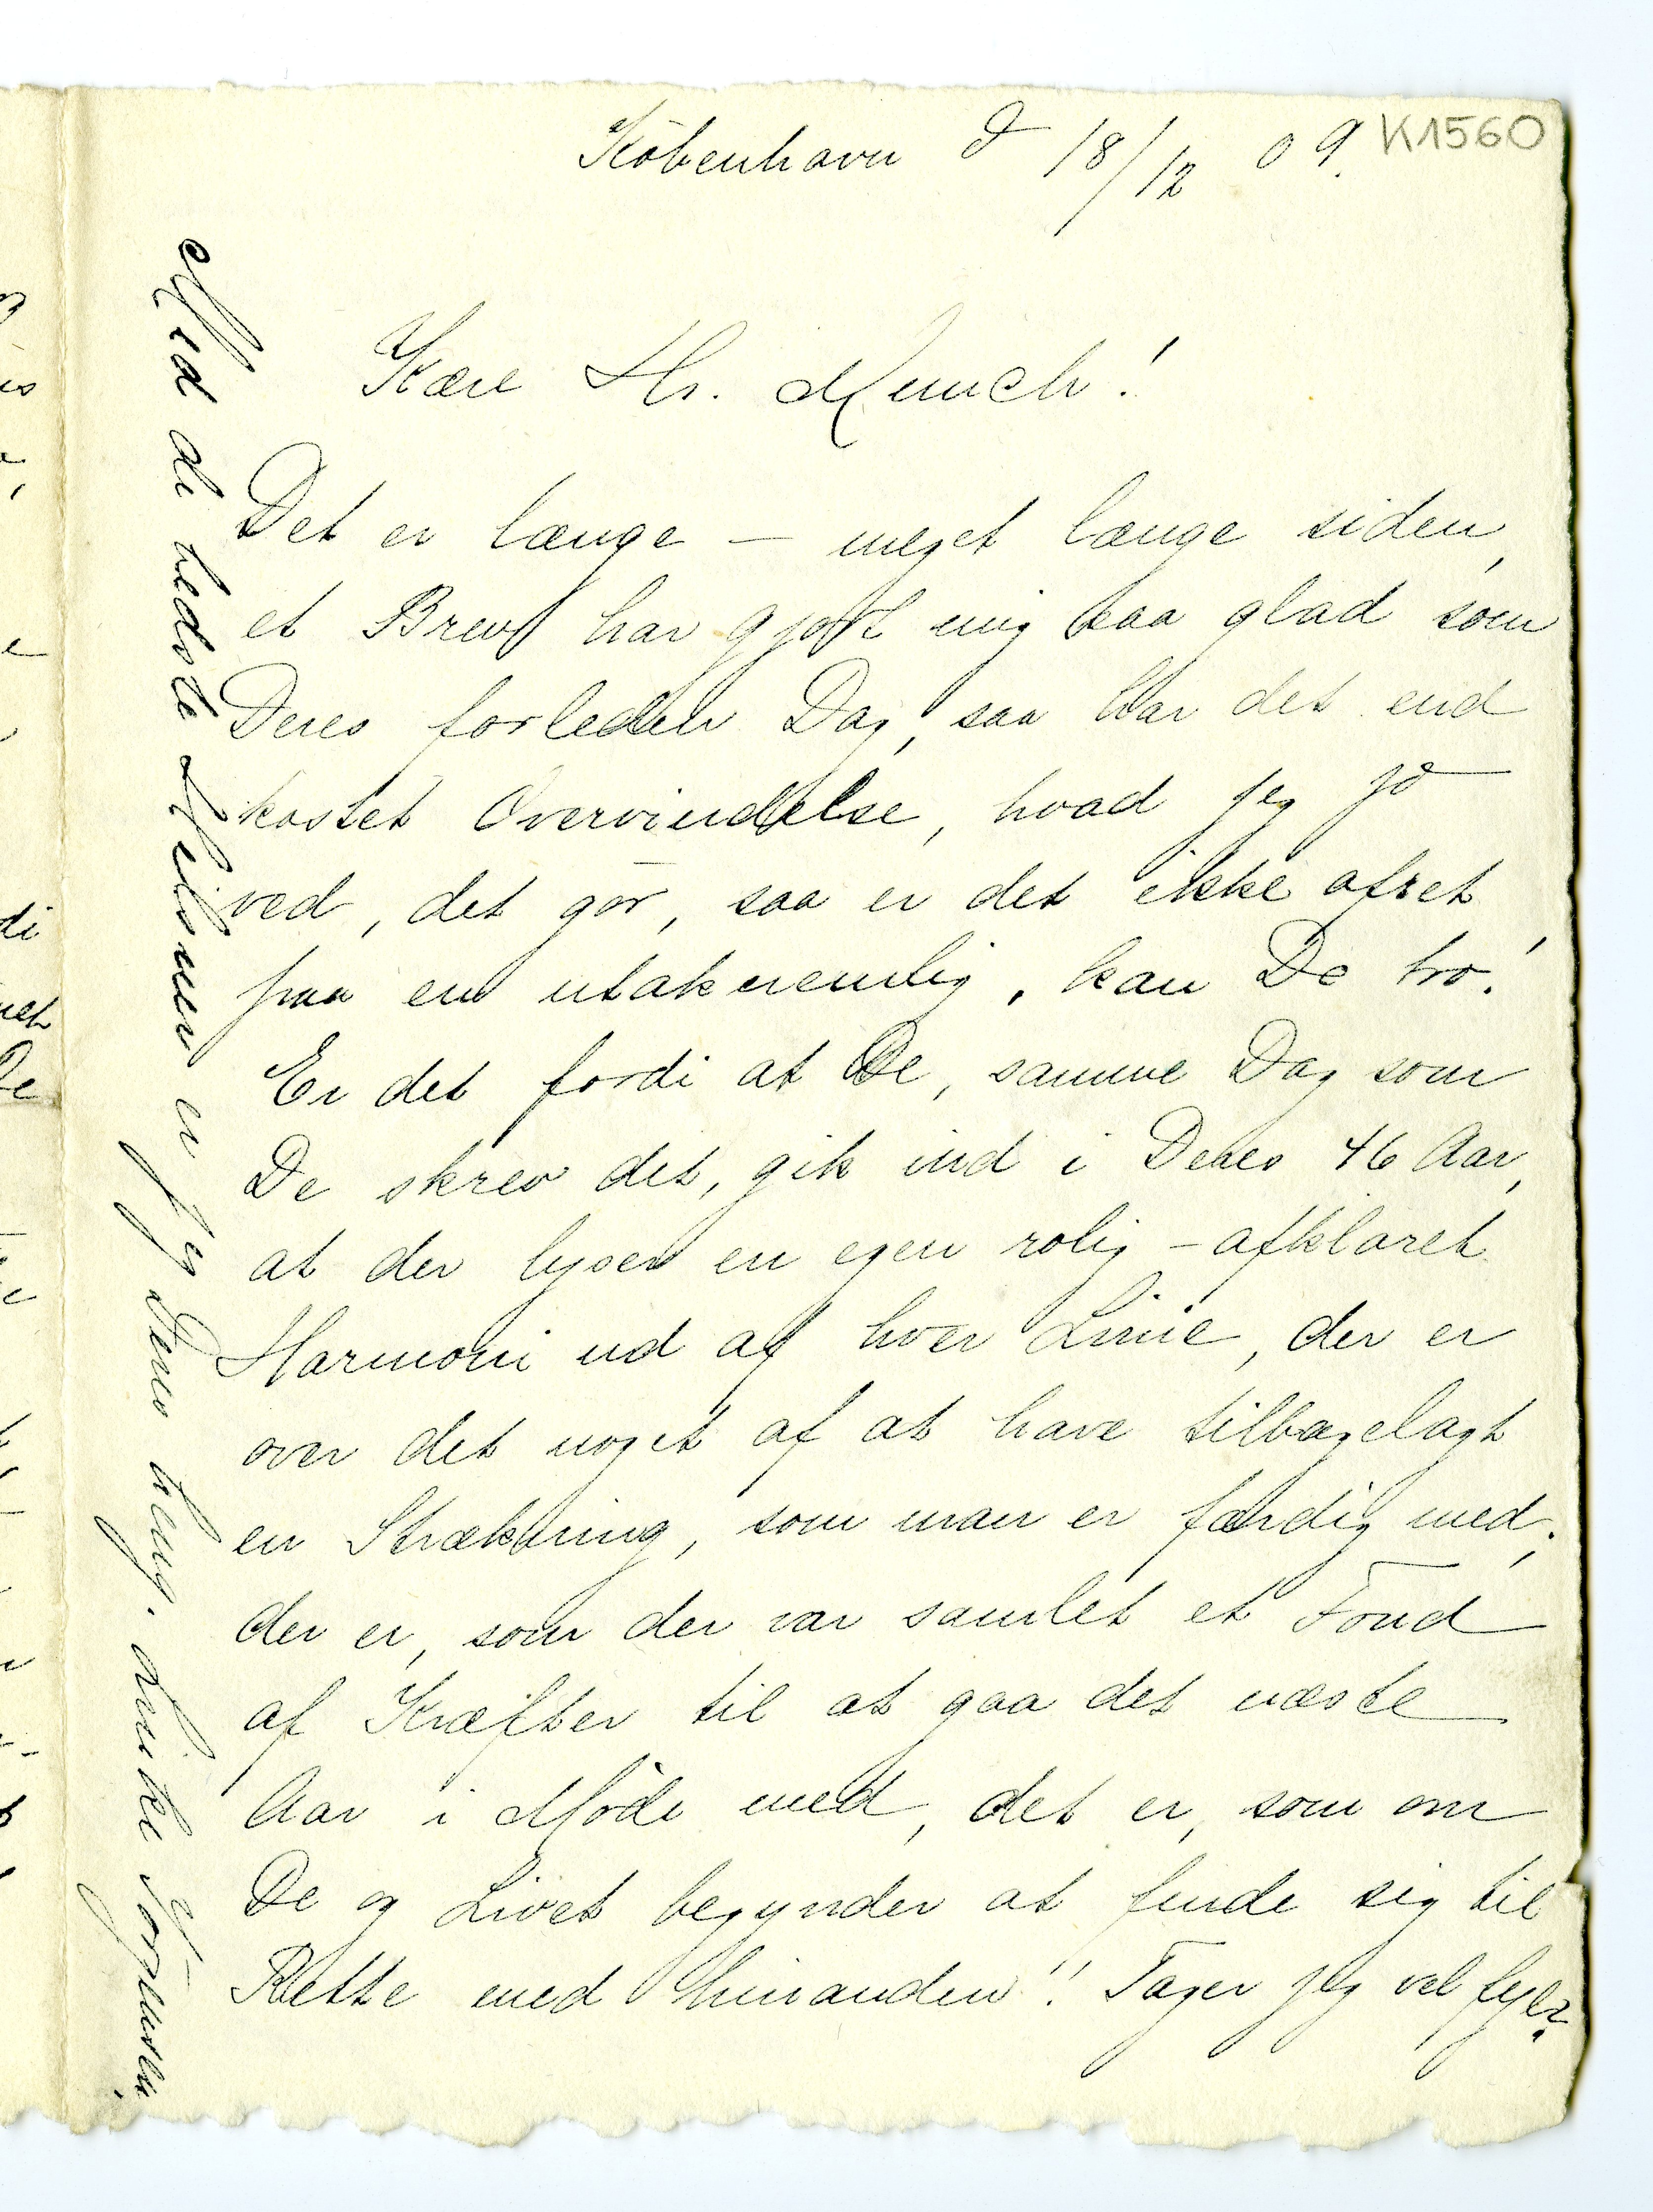 København d 18/12 09.
K1560
Kære Hr. Munch!
Det er længe – meget længe siden,
et Brev har gjort mig saa glad som
Deres forleden Dag, saa har det end
kostet Overvindelse, hvad jeg jo
ved, det gør, saa er det ikke ofret
paa en utaknemlig, kan De tro!
Er det fordi at De, samme Dag som
De skrev det, gik ind i Deres 46 Aar,
at der lyser en egen rolig – afklaret
Harmoni ud af hver Linie, der er
over det noget af at have tilbagelagt
en Strækning, som man er færdig med;
der er, som der var samlet et Fond
af Kræfter til at gaa det næste
Aar i Møde med, det er, som om
De og Livet begynder at finde sig til
Rette med hinanden! Tager jeg vel fejl?
Med de bedste Hilsner er jeg Deres heng. Smike